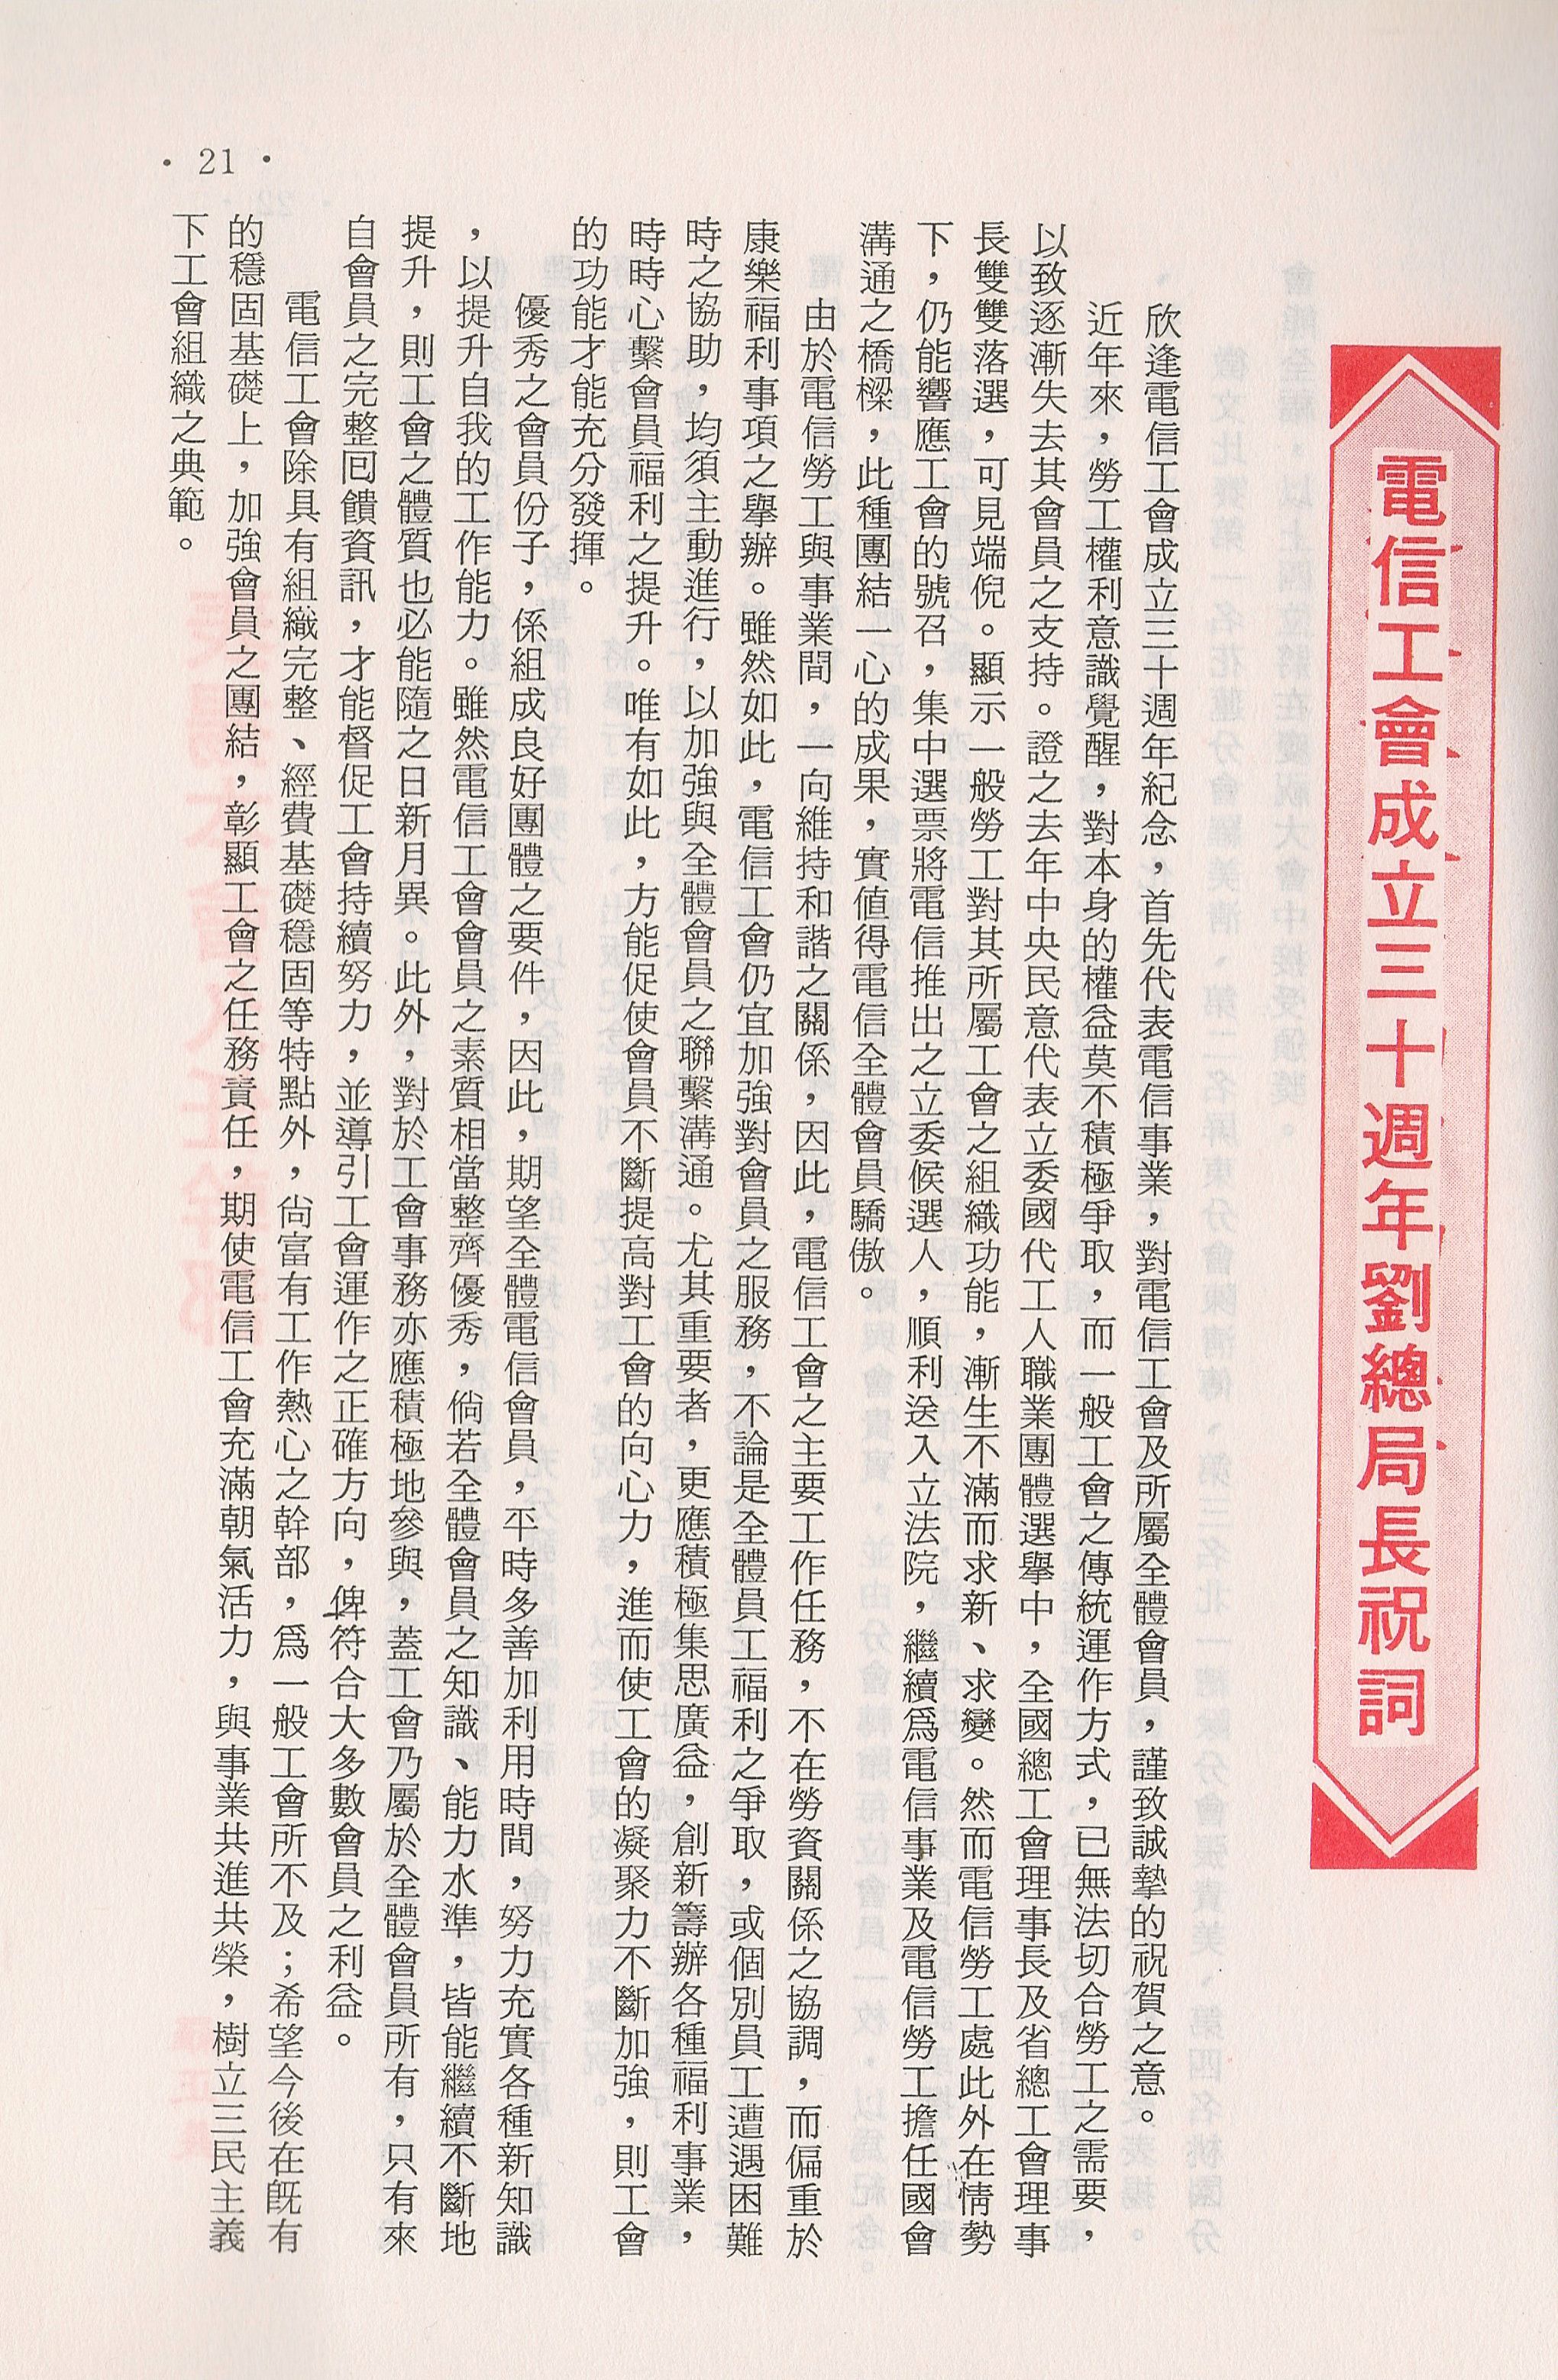 電信工會成立三十週年劉總局長祝詞
欣逢電信工會成立三十週年紀念，首先代表電信事業，對電信工會及所屬全體會員，謹致誠摯的祝賀之意。
近年來，勞工權利意識覺醒，對本身的權益莫不積極爭取，而一般工會之傳統運作方式，已無法切合勞工之需要，
以致逐漸失去其會員之支持。證之去年中央民意代表立委國代工人職業團體選舉中，全國總工會理事長及省總工會理事
長雙雙落選，可見端倪。顯示一般勞工對其所屬工會之組織功能，漸生不滿而求新、求變。然而電信勞工處此外在情勢
下，仍能響應工會的號召，集中選票將電信推出之立委候選人，順利送入立法院，繼續爲電信事業及電信勞工擔任國會
溝通之橋樑，此種團結一心的成果，實値得電信全體會員驕傲。
由於電信勞工與事業間，一向維持和諧之關係，因此，電信工會之主要工作任務，不在勞資關係之協調，而偏重於
康樂福利事項之舉辦。雖然如此，電信工會仍宜加強對會員之服務，不論是全體員工福利之爭取，或個別員工遭遇困難
時之協助，均須主動進行，以加強與全體會員之聯繫溝通。尤其重要者，更應積極集思廣益，創新籌辦各種福利事業，
時時心繫會員福利之提升。唯有如此，方能促使會員不斷提高對工會的向心力，進而使工會的凝聚力不斷加強，則工會
的功能才能充分發揮。
優秀之會員份子，係組成良好團體之要件，因此，期望全體電信會員，平時多善加利用時間，努力充實各種新知識
，以提升自我的工作能力。雖然電信工會會員之素質相當整齊優秀，倘若全體會員之知識、能力水準，皆能繼續不斷地
提升，則工會之體質也必能隨之日新月異。此外，對於工會事務亦應積極地參與，蓋工會乃屬於全體會員所有，只有來
自會員之完整回饋資訊，才能督促工會持續努力，並導引工會運作之正確方向，俾符合大多數會員之利益。
電信工會除具有組織完整、經費基礎穩固等特點外，尙富有工作熱心之幹部，爲一般工會所不及；希望今後在旣有
的穩固基礎上，加強會員之團結，彰顯工會之任務責任，期使電信工會充滿朝氣活力，與事業共進共榮，樹立三民主義
下工會組織之典範。
• 21 •